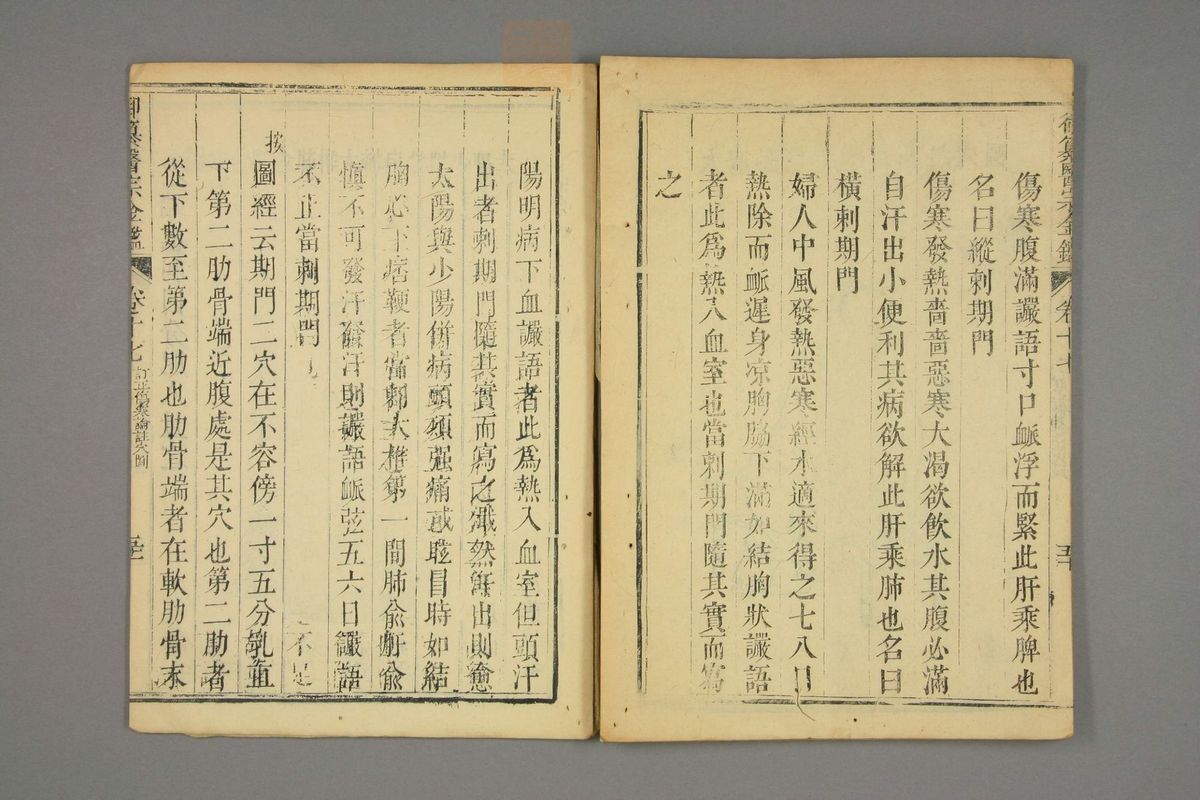 御纂醫宗金鑑 卷十七 五十
傷寒腹滿讝語寸口脈浮而緊此肝乘脾也
名曰縱刺期門
傷寒發熱嗇嗇惡寒大渴欲飲水其腹必滿
自汗出小便利其病欲解此肝乘肺也名曰
橫刺期門
婦人中風發熱惡寒經水適來得之七八日
熱除而脈遲身凉胸脇下滿如結胸狀讝語
者此爲熱入血室也當刺期門隨其實而瀉
之
陽明病下血讝語者此爲熱入血室但頭汗
出者刺期門隨其實而瀉之濈然汗出則愈
太陽與少陽併病頭項强痛或眩冒時如結
胸心下痞鞕者當刺大椎第一間肺兪肝兪
愼不可發汗發汗則讝語脈弦五六日讝語
不止當刺期門
按圖經云期門二穴在不容傍一寸五分乳直
下第二肋骨端近腹處是其穴也第二肋者
從下數至第二肋也肋骨端者在軟肋骨末
御纂醫宗金鑑 卷十七 訂正傷寒論註